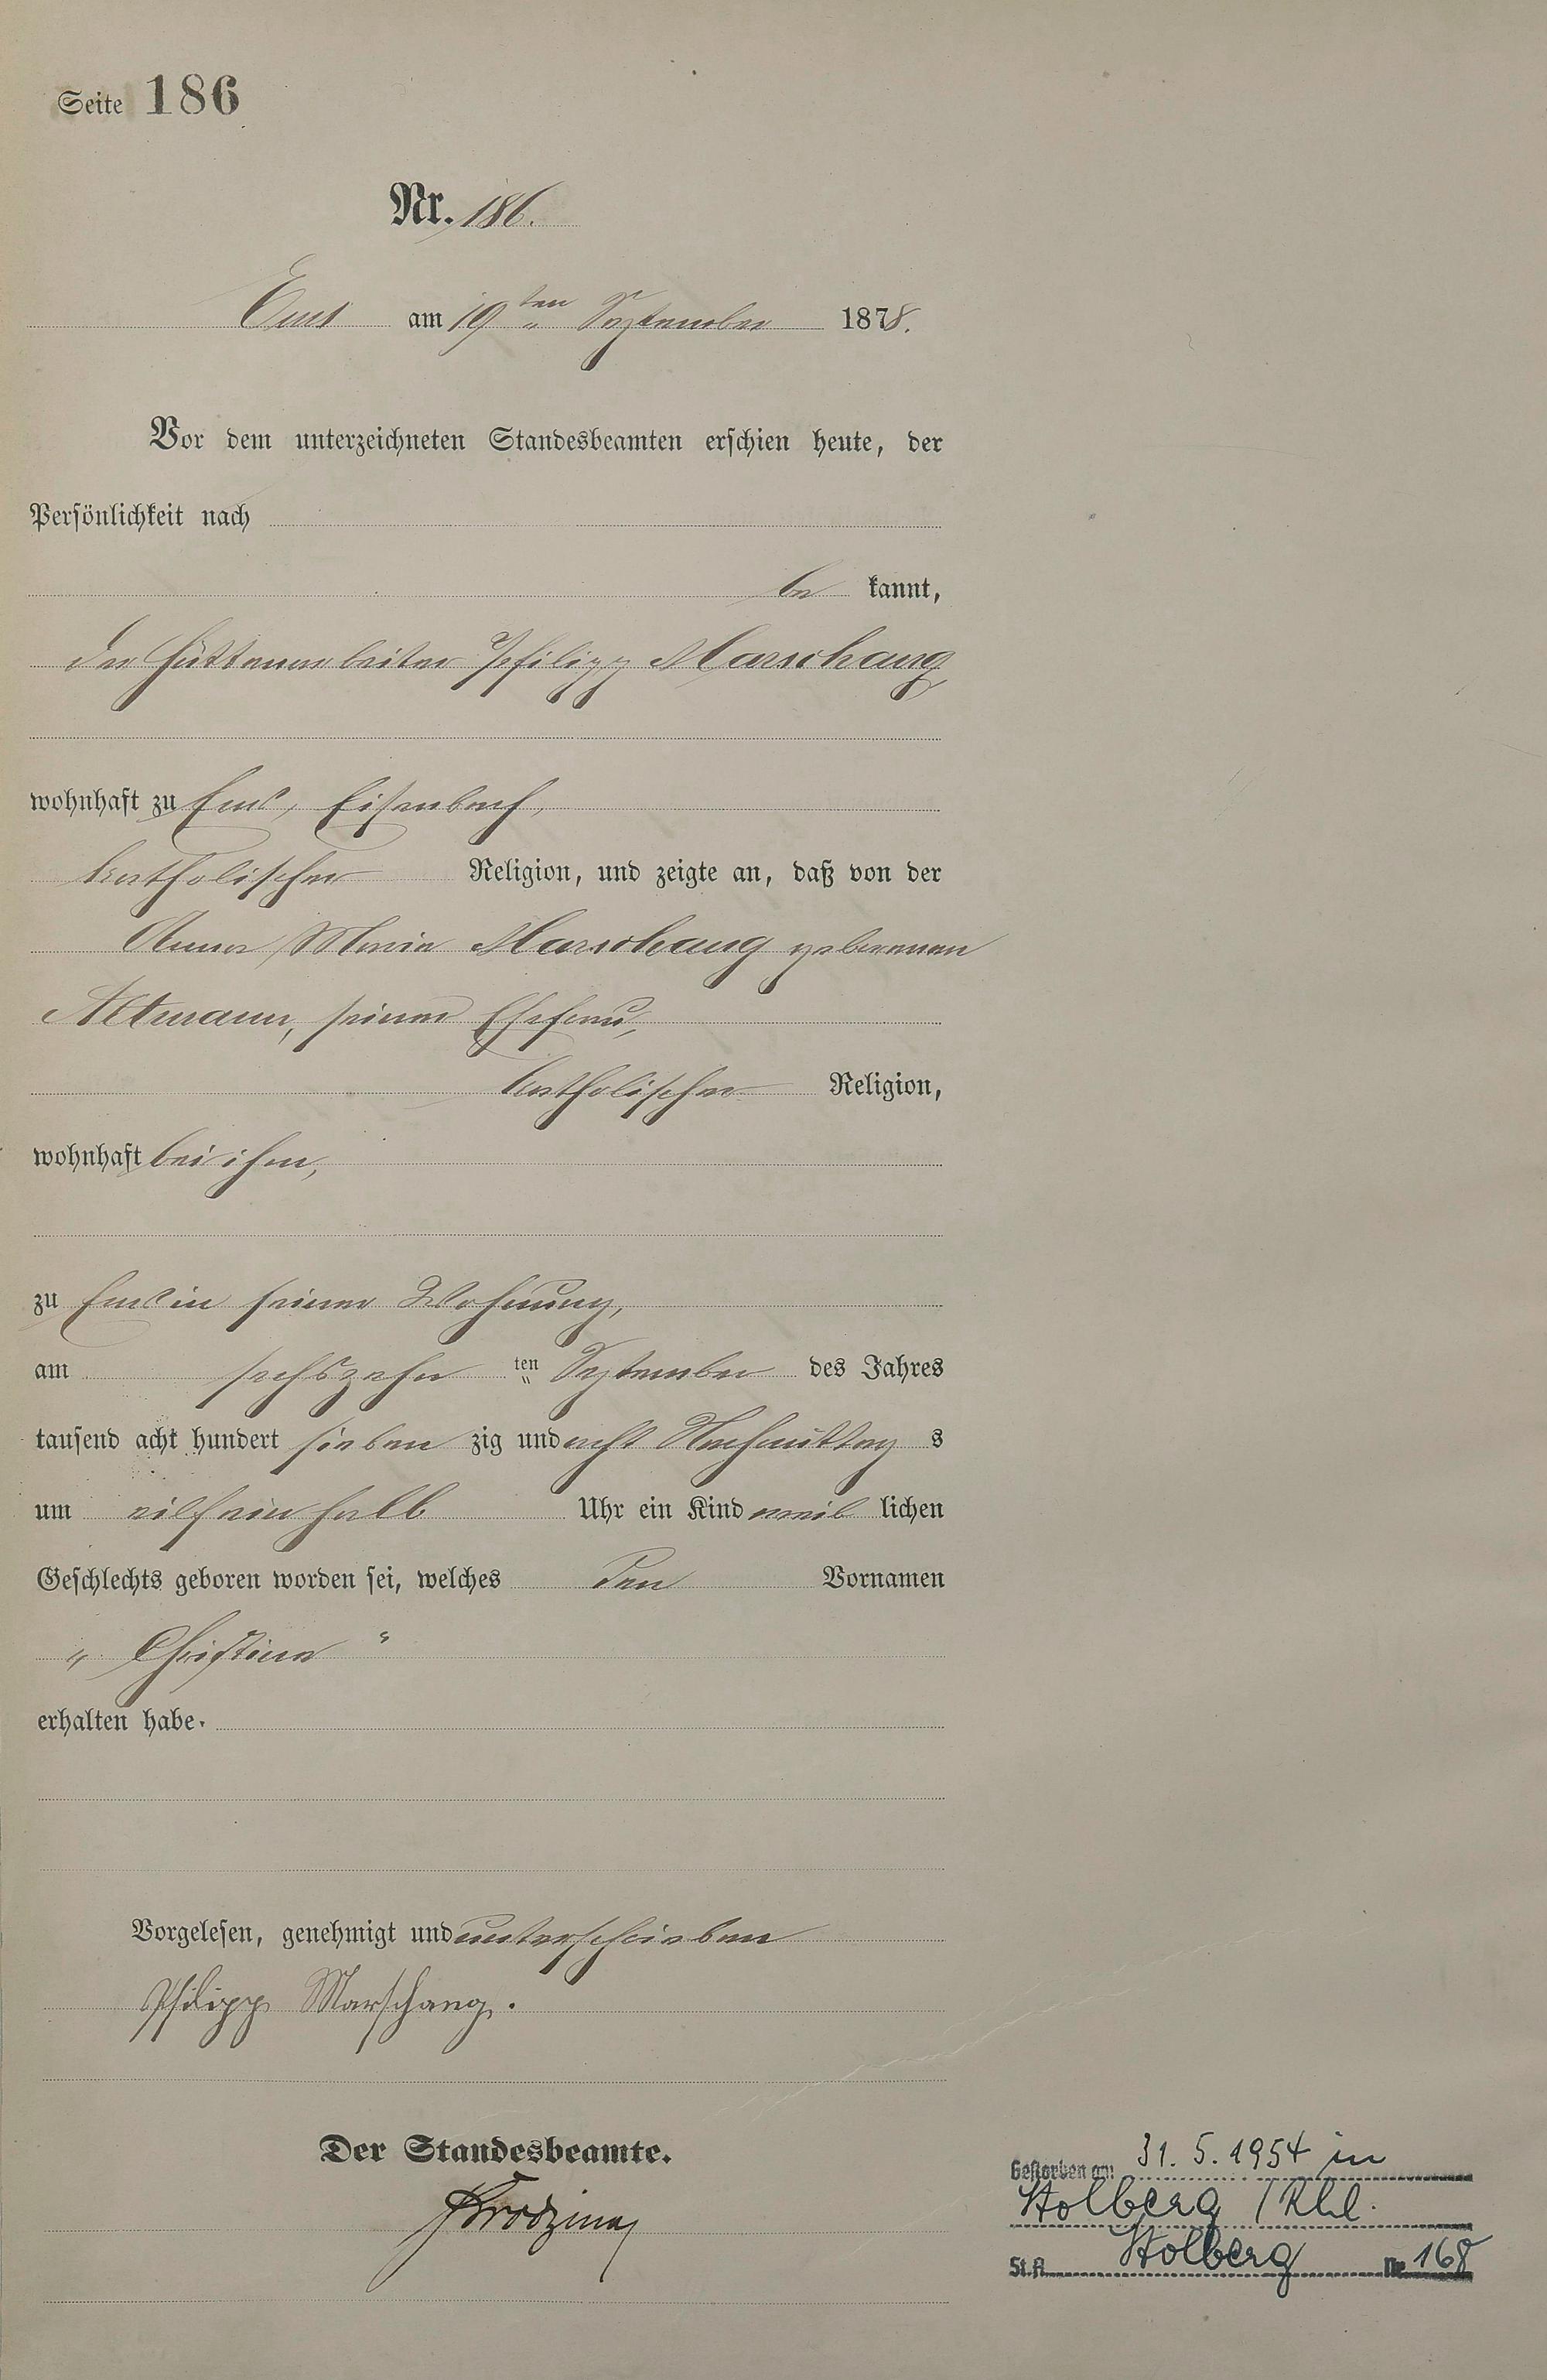 Seite 186
Nr. 186.
Ems am 19ten September 1878.
Vor dem unterzeichneten Standesbeamten erschien heute, der
Persönlichkeit nach
be kannt,
der Hüttenarbeiter Philipp Marschang,
wohnhaft zu Ems, Eisenbach,
katholischer Religion, und zeigte an, daß von der
Anna Maria Marschang geborenen
Altmann, seiner Ehefrau,
katholischer Religion,
wohnhaft bei ihm,
zu Ems in seiner Wohnung,
am sechszehn ten September des Jahres
tausend acht hundert sieben zig und acht Nachmittag s
um eilfeinhalb Uhr ein Kind weib lichen
Geschlechts geboren worden sei, welches den Vornamen
„Christina“
erhalten habe.
Vorgelesen, genehmigt und unterschrieben
Philipp Marschang.
Der Standesbeamte.
Gestorben am 31. 5. 1954 in
Stolberg / Rhl.
St.A. Stolberg Nr. 168